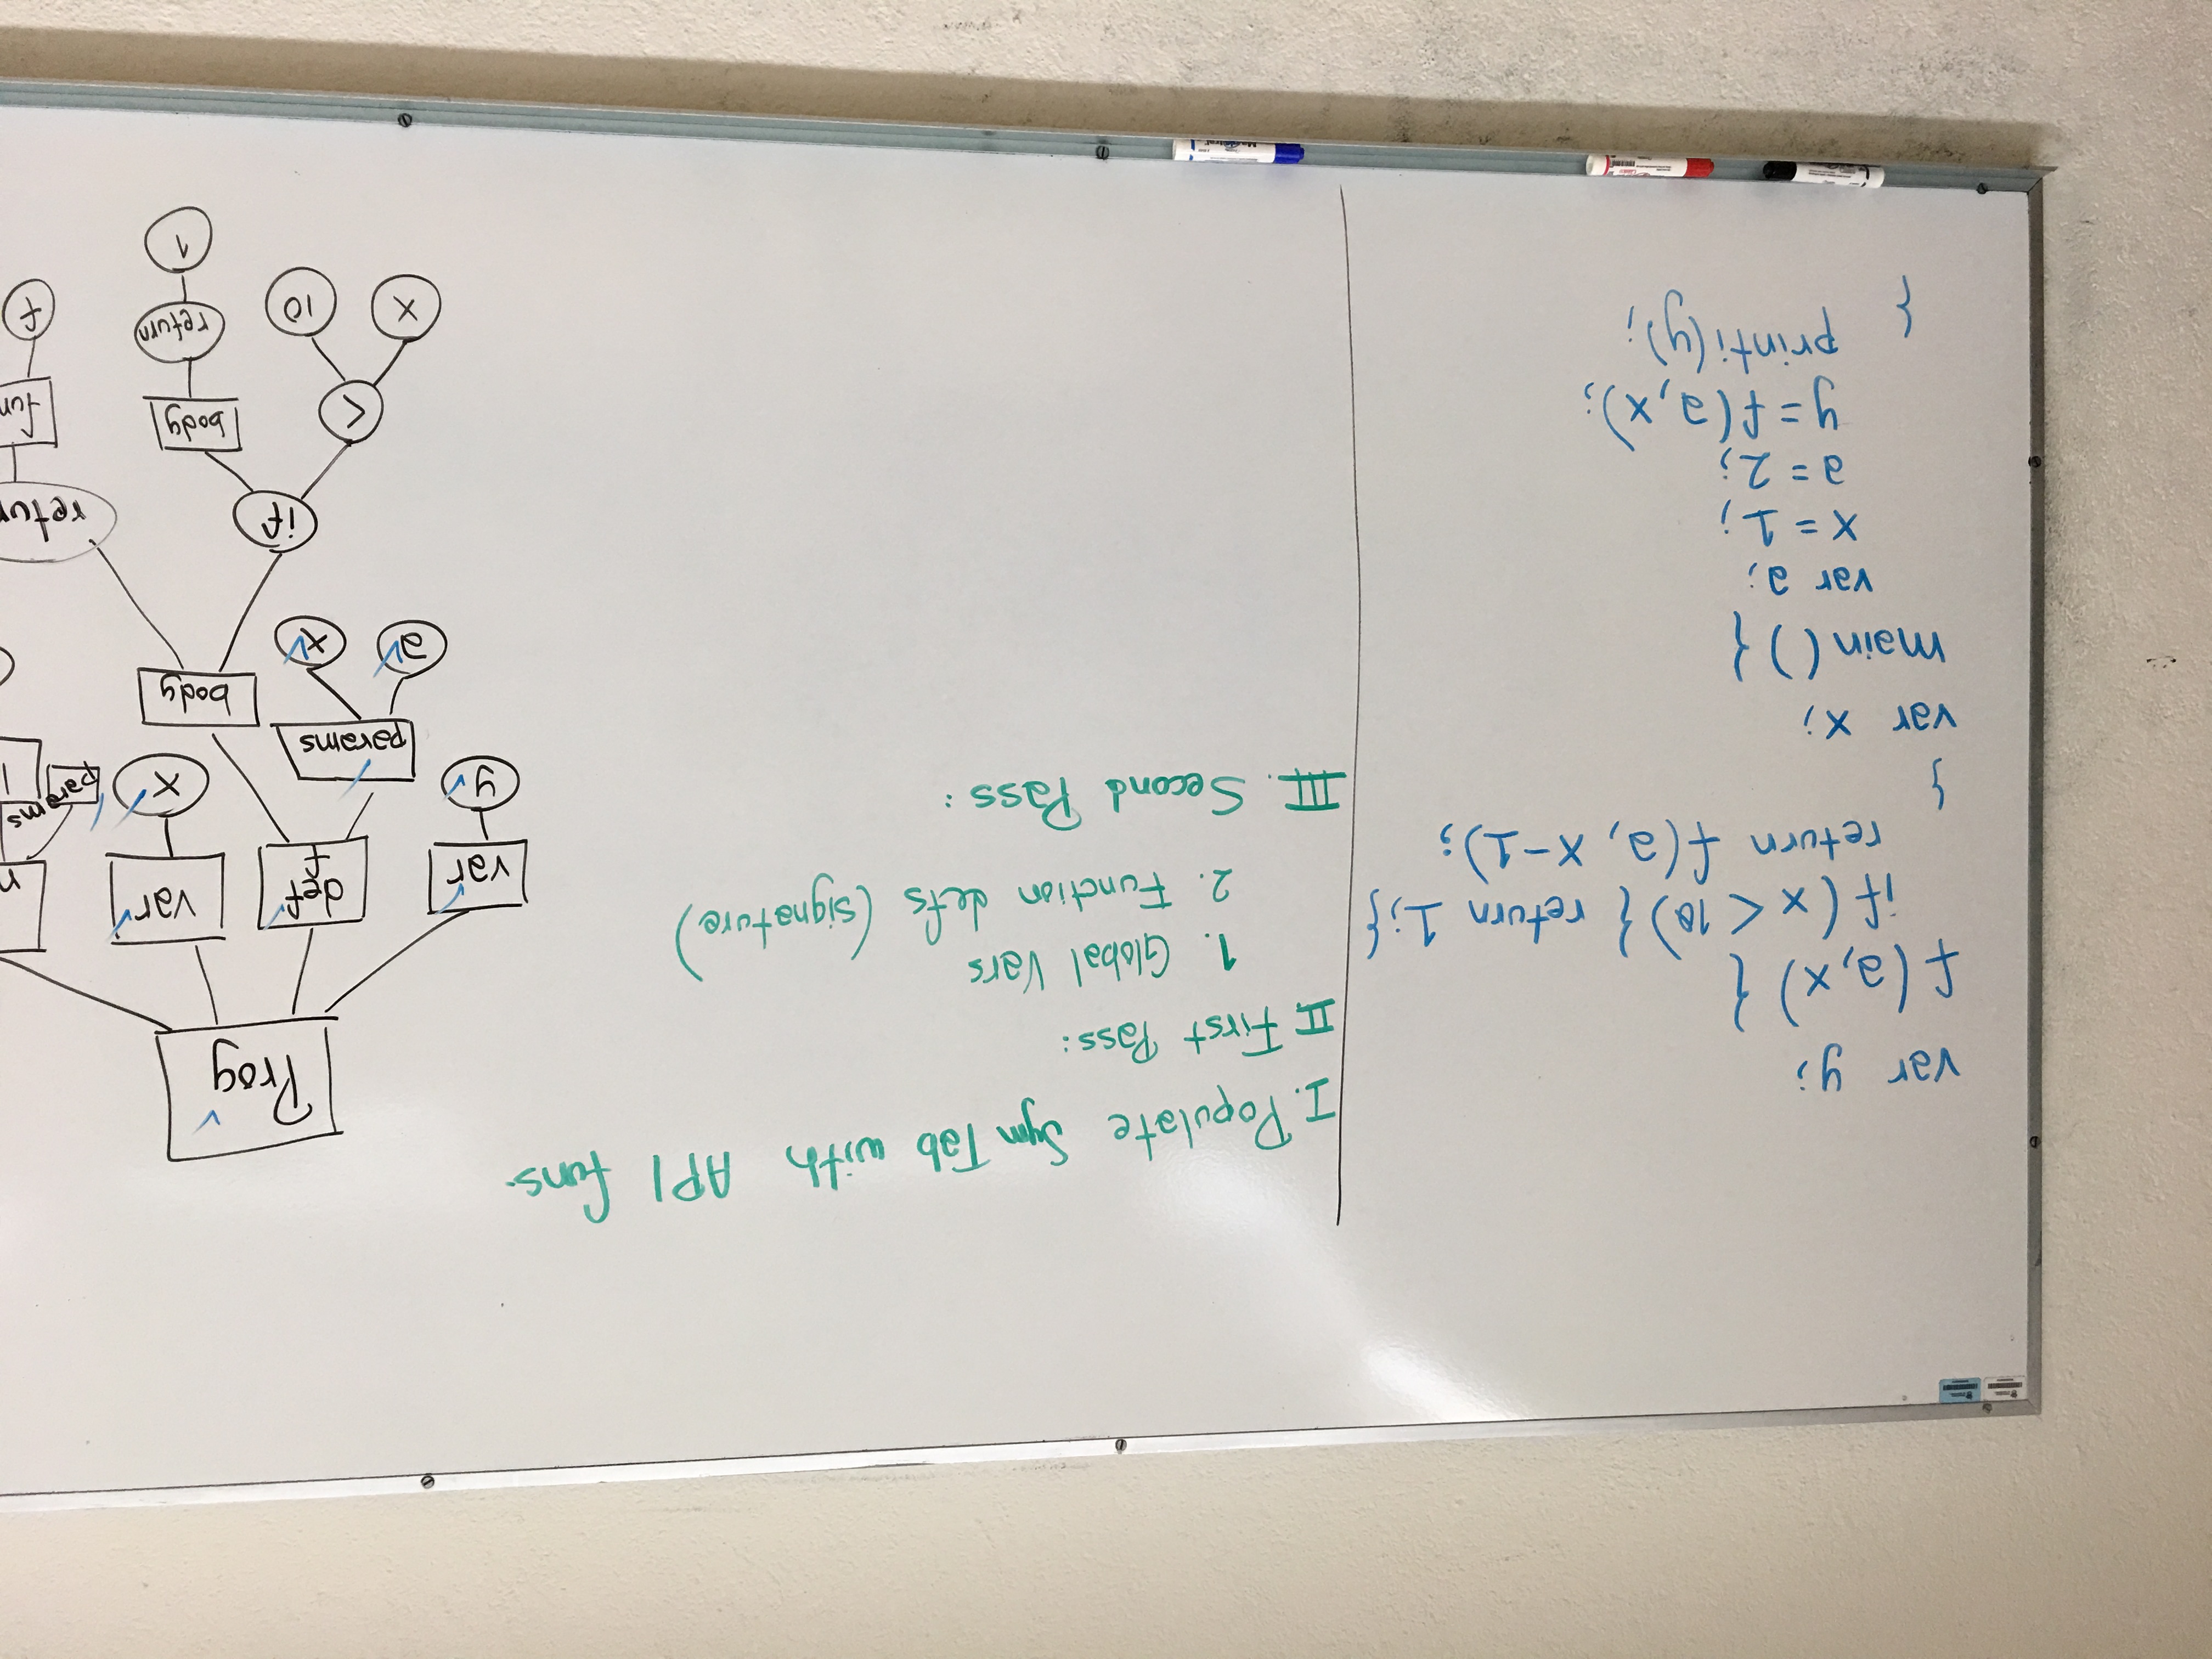 var y;
f(a,x){
if(x<10){ return 1;}
return f(a, x-1);
}
var x;
main(){
var a;
x=1;
a=2;
y=f(a,x);
printi(y);
}
I. Populate Sym Tab with API funs.
II. First Pass:
1. Global Vars
2. Function defs (signature)
III. Second Pass:
Prog
var
def
f
var
y
params
x
params
body
a
x
if
<
body
x
10
return
f
1